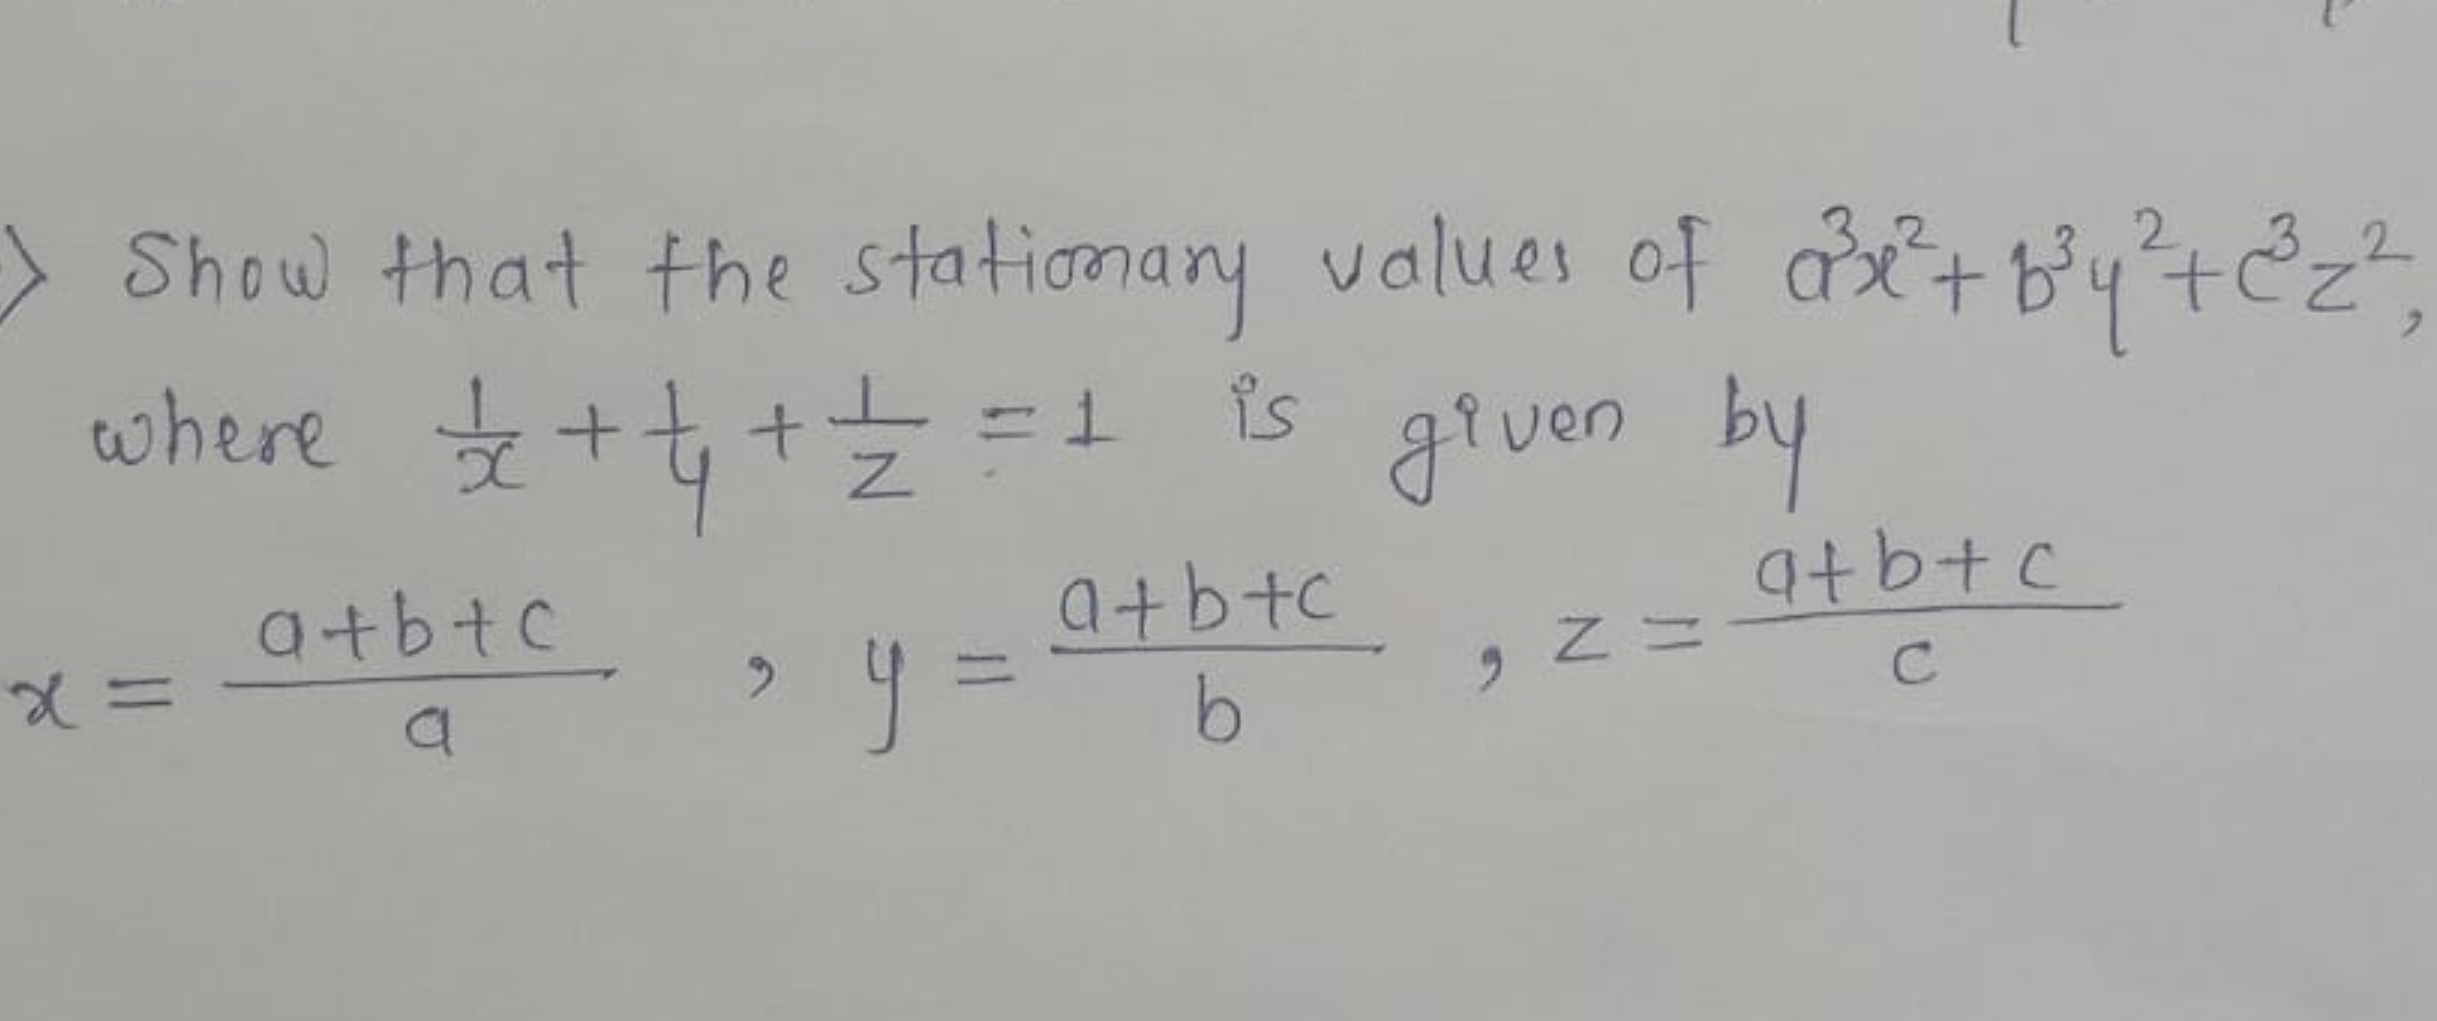 > Show that the stationary values of a³x² + b³y² + c³z²,
where 1/x + 1/y + 1/z = 1 is given by
x = (a+b+c)/a , y = (a+b+c)/b , z = (a+b+c)/c